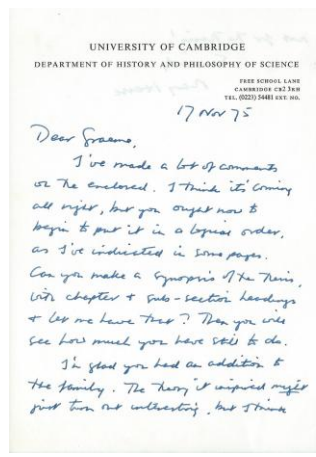 UNIVERSITY OF CAMBRIDGE
DEPARTMENT OF HISTORY AND PHILOSOPHY OF SCIENCE
FREE SCHOOL LANE
CAMBRIDGE CB2 3RH
TEL. (0223) 54481 EXT. NO.
17 Nov 75
Dear Graeme,
I've made a lot of comments
on the enclosed. I think it's coming
all right, but you ought now to
begin to put it in a logical order,
as I've indicated in some pages.
Can you make a synopsis of the Thesis,
with chapter & sub-section headings
& let me have that? Then you will
see how much you have still to do.
I'm glad you had an addition to
the family. The theory it inspired might
just turn out interesting, but I think